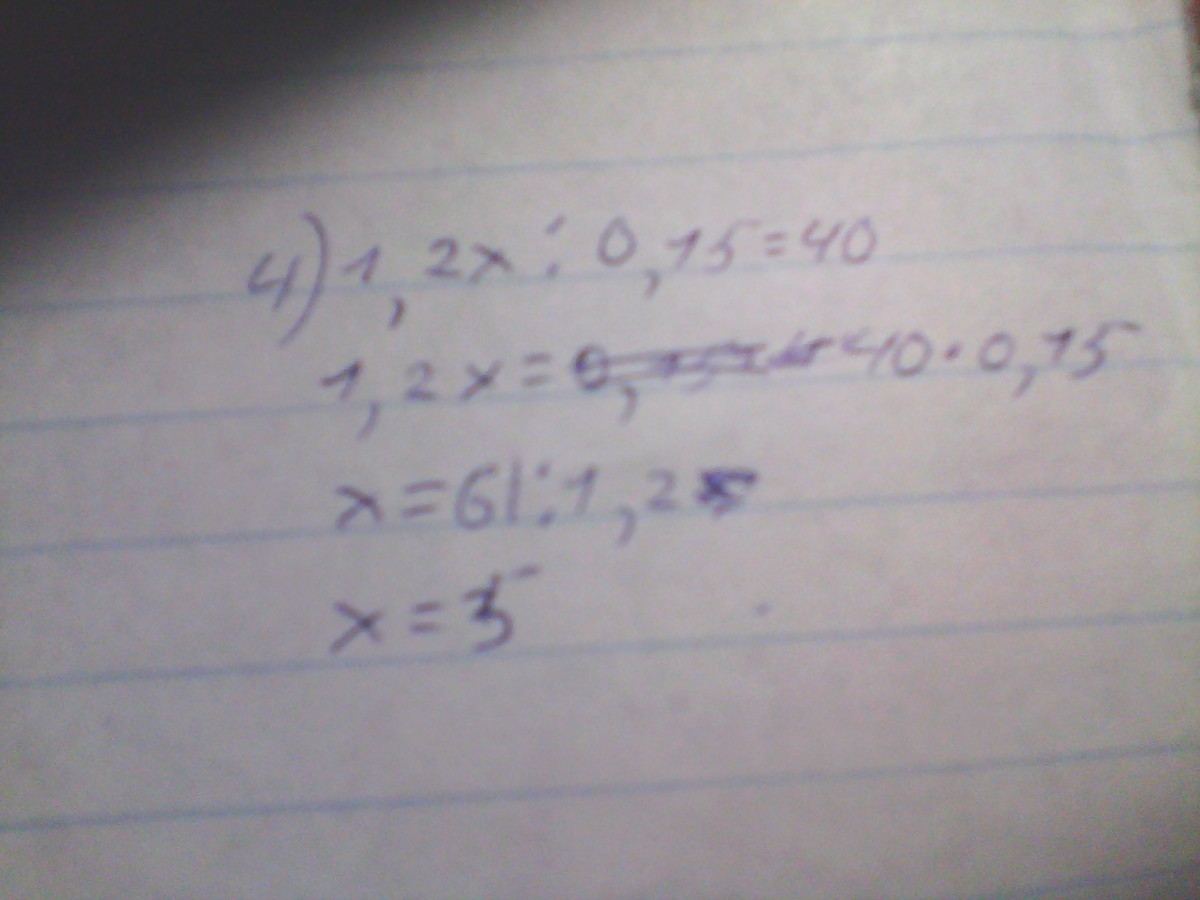 4) 1,2x : 0,15 = 40
1,2x = 40 · 0,15
x = 6 : 1,2
x = 5